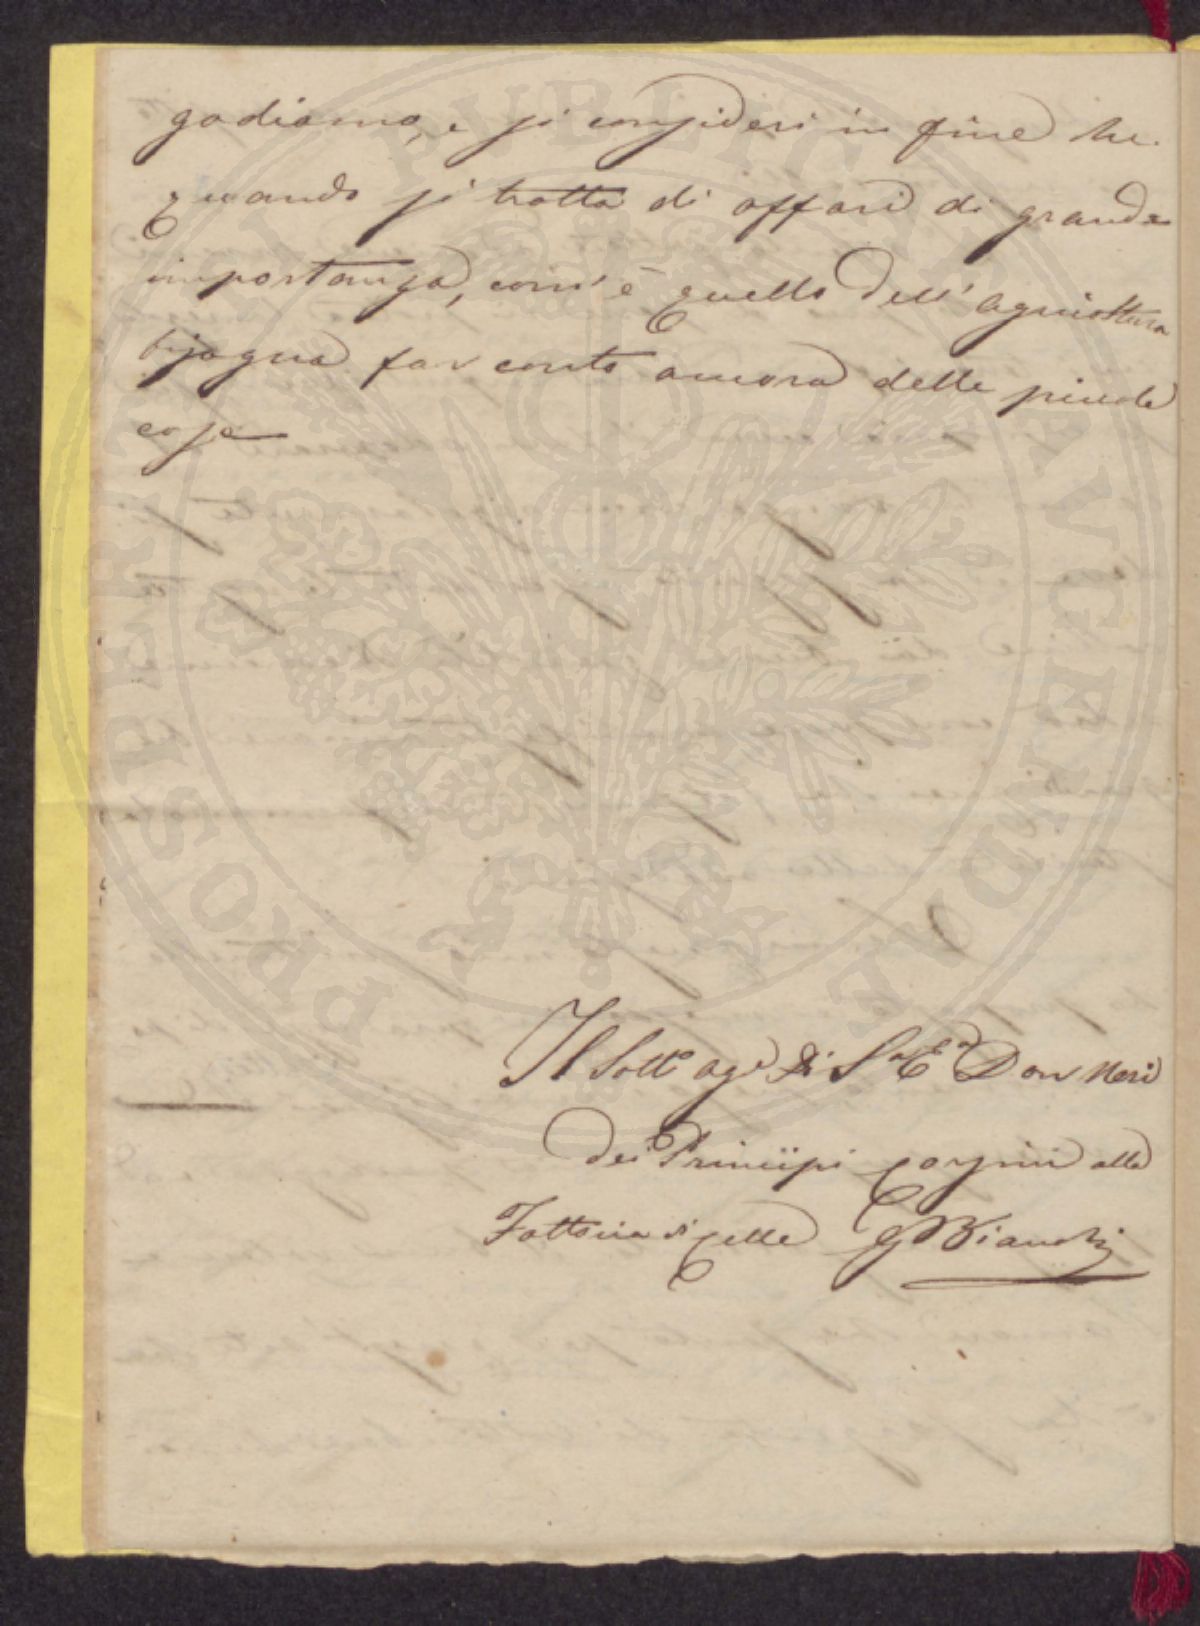 godiamo, e si consideri in fine che
quando si tratta di affari di grande
importanza, com'è quello dell'agricoltura
bisogna far conto ancora delle piccole
cose
Il Sotto age di S.a E.a Don Neri
dei Principi Corsini alla
Fattoria di Celle G Bianchi
PROSPERITATI PVBLICAE AVGENDAE